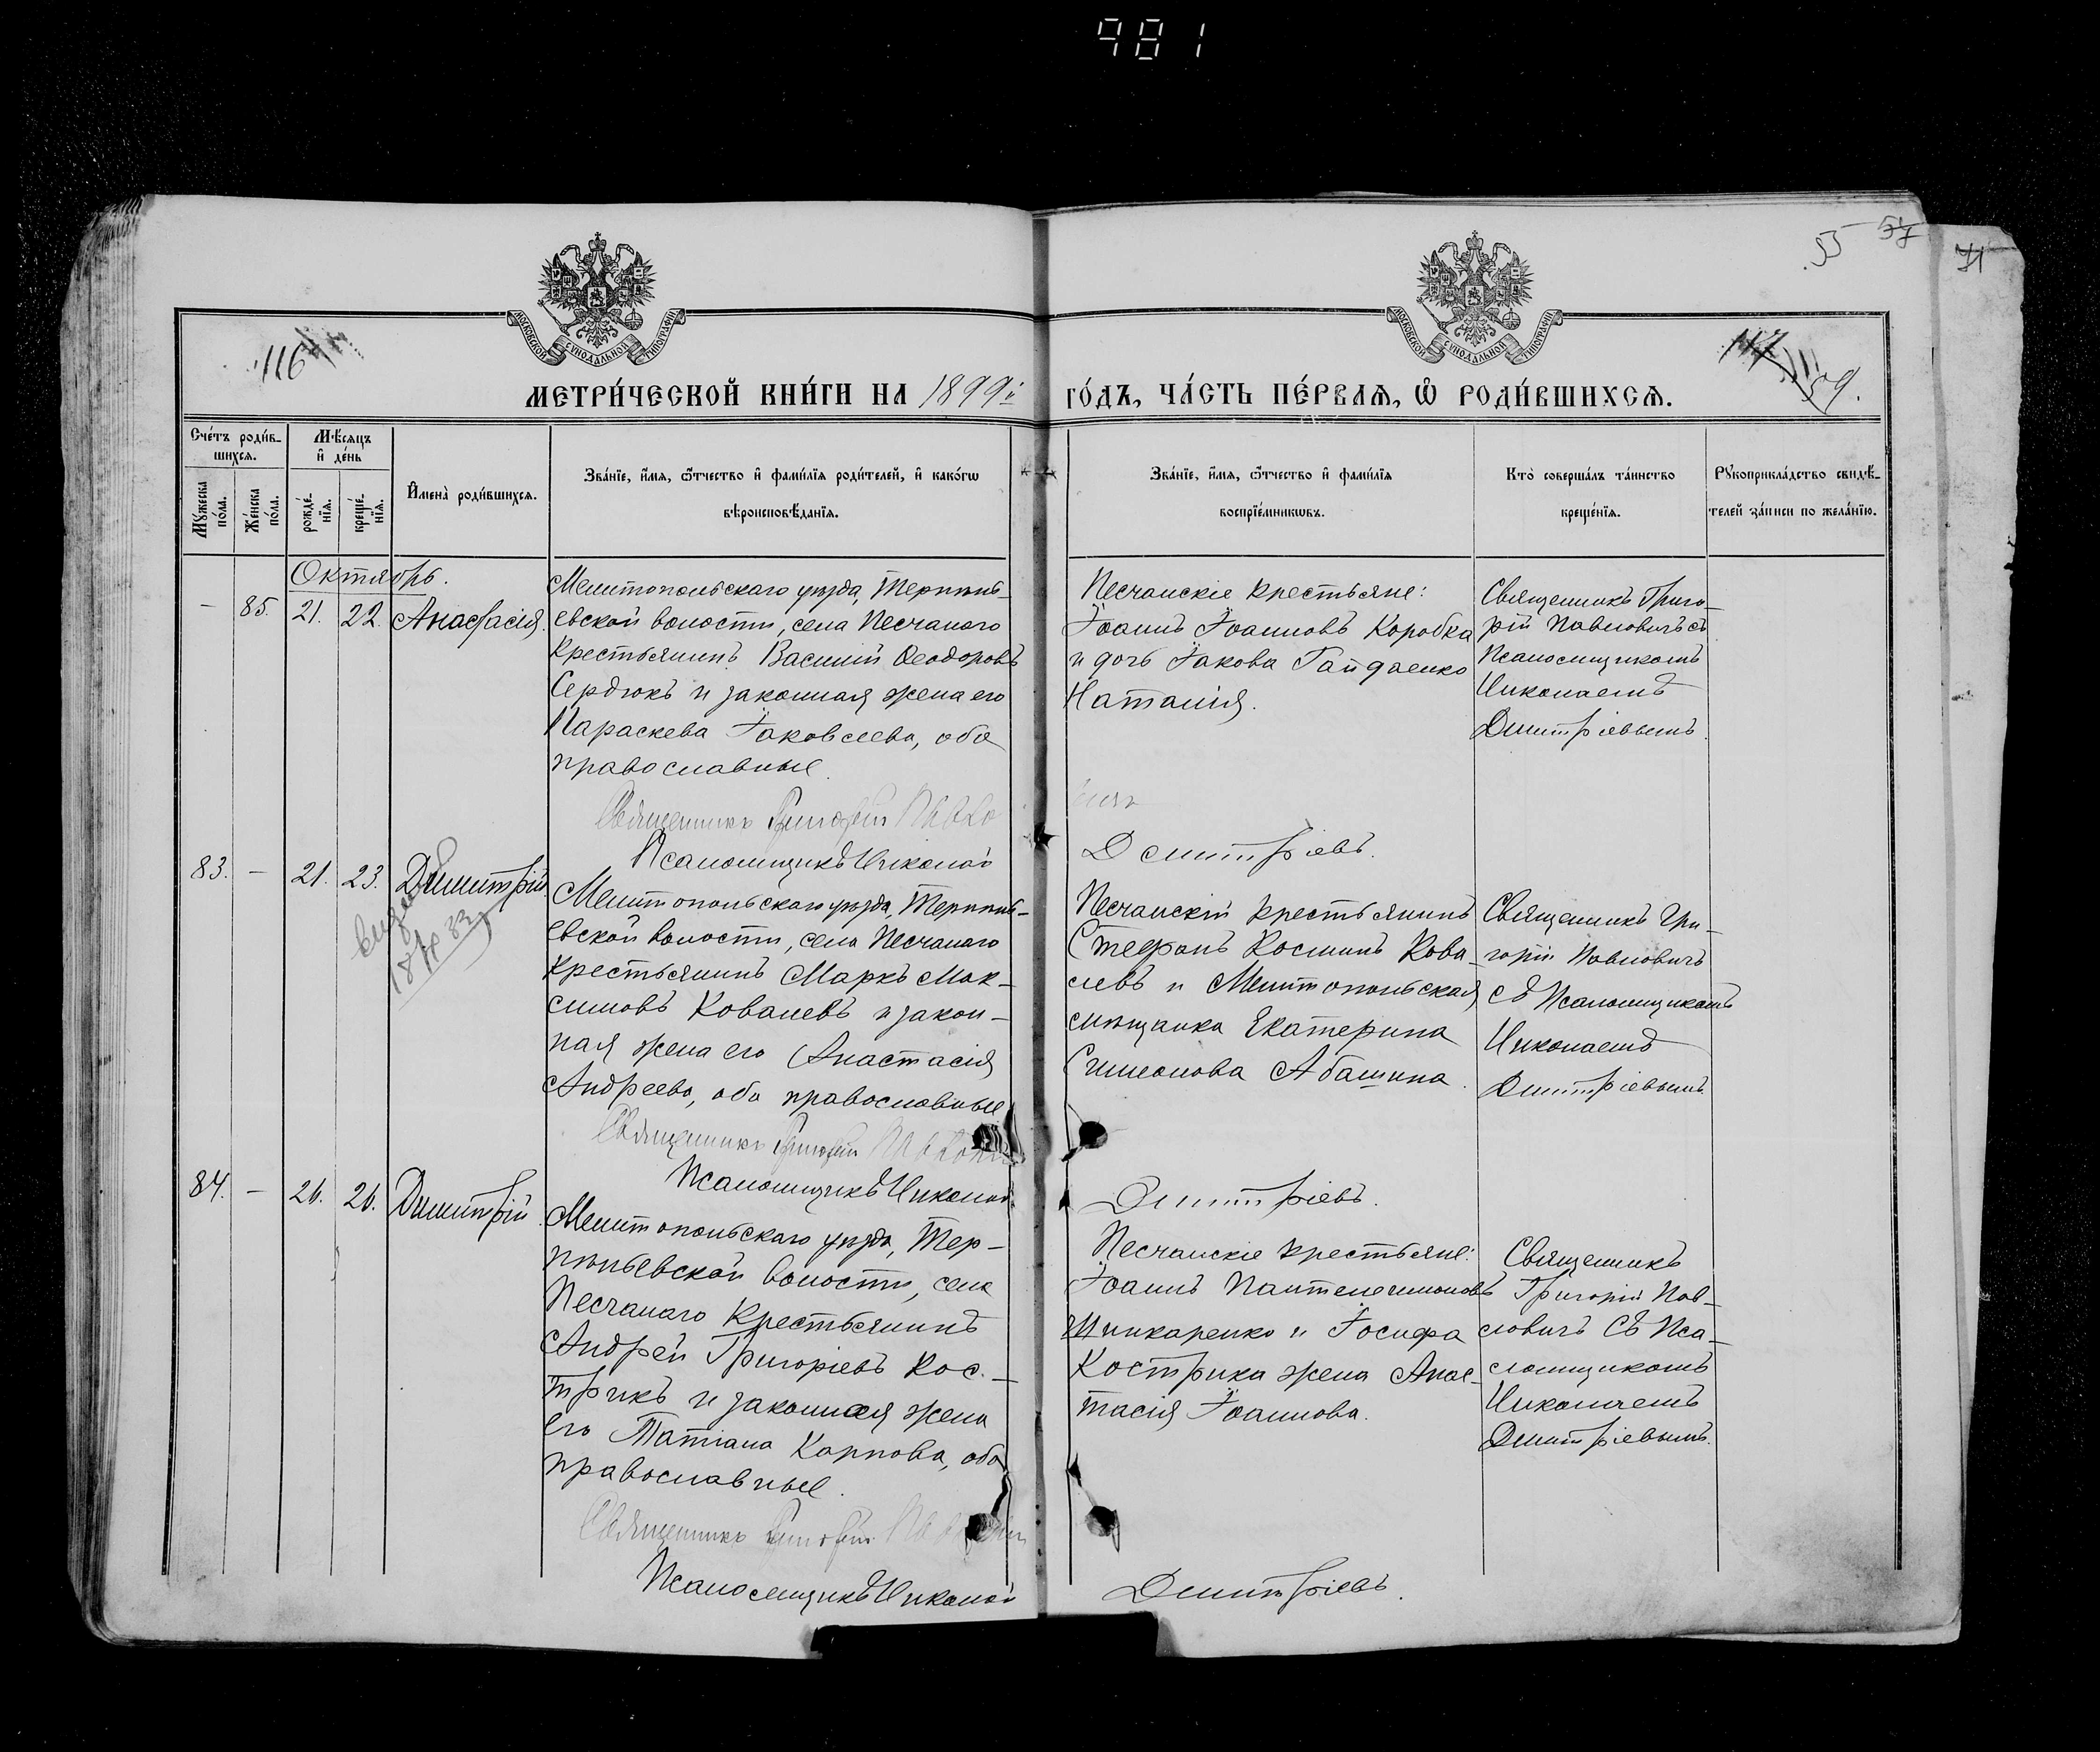 981
55 57
71
116
117
59.
МОСКОВСКОЙ СѴНОДАЛЬНОЙ ТИПОГРАФІИ
МОСКОВСКОЙ СѴНОДАЛЬНОЙ ТИПОГРАФІИ
МЕТРИ́ЧЕСКОЙ КНИ́ГИ НА 1899й ГО́ДЪ, ЧА́СТЬ ПЕ́РВАѦ, Ѡ҆ РОДИ́ВШИХСѦ.
Сче́тъ роди́в-
шихсѧ.
Мѣ́сѧцъ
и҆ де́нь
Мꙋ́жеска
по́ла.
Же́нска
по́ла.
рожде́-
нїѧ.
креще́-
нїѧ.
И҆мена̀ роди́вшихсѧ.
Зва́нїе, и҆́мѧ, ѻ҆́тчество и҆ фами́лїѧ роди́телей, и҆ како́гѡ
вѣроисповѣ́данїѧ.
Зва́нїе, и҆́мѧ, ѻ҆́тчество и҆ фами́лїѧ
воспрїе́мникѡвъ.
Кто̀ соверша́лъ та́инство
креще́нїѧ.
Рꙋкоприкла́дство свидѣ́-
телей за́писи по жела́нїю.
Октябрь.
– 85. 21. 22. Анастасія.
Мелитопольскаго уѣзда, Терпѣнь-
евской волости, села Песчанаго
крестьянинъ Василій Ѳеодоровъ
Сердюкъ и законная жена его
Параскева Іаковлева, оба
православные.
Священникъ Григорій Павло
Псаломщикъ Николай
Песчанскіе крестьяне:
Іоаннъ Іоанновъ Коробка
и дочь Іакова Гайдаенко
Наталія.
Дмитріевъ.
Священникъ Григо-
рій Павловичъ съ
Псаломщикомъ
Николаемъ
Дмитріевымъ.
83. – 21. 23. Димитрій.
Мелитопольскаго уѣзда, Терпѣнь-
евской волости, села Песчанаго
крестьянинъ Маркъ Мак-
симовъ Ковалевъ и закон-
ная жена его Анастасія
Андреева, оба православные
Священникъ Григорій
Псаломщикъ Николай
Песчанскій крестьянинъ
Стефанъ Косминъ Кова-
левъ и Мелитопольская
мѣщанка Екатерина
Симеонова Абашина.
Дмитріевъ.
Священникъ Гри-
горій Павловичъ
съ Псаломщикомъ
Николаемъ
Дмитріевымъ.
84. – 26. 26. Димитрій.
Мелитопольскаго уѣзда, Тер-
пѣньевской волости, села
Песчанаго Крестьянинъ
Андрей Григоріевъ Кос-
трикъ и законная жена
его Татіана Карпова, оба
православные.
Священникъ Григорій
Псаломщикъ Николай
Песчанскіе крестьяне:
Іоаннъ Пантелеимоновъ
Шинкаренко и Іосифа
Кострика жена Анас-
тасія Іоаннова.
Дмитріевъ.
Священникъ
Григорій Пав-
ловичъ Съ Пса-
ломщикомъ
Николаемъ
Дмитріевымъ.